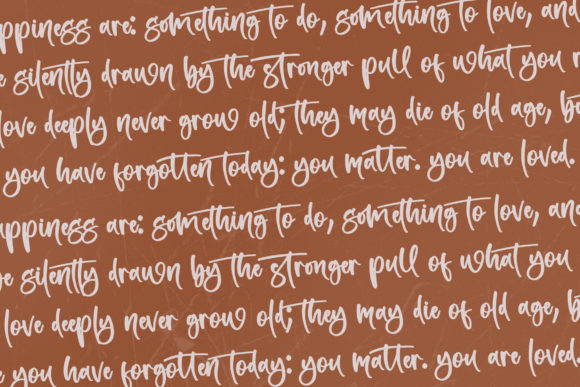 ppiness are: something to do, something to love, and
e silently drawn by the stronger pull of what you r
love deeply never grow old; they may die of old age, b
you have forgotten today: you matter. you are loved.
appiness are: something to do, something to love, and
e silently drawn by the stronger pull of what you
love deeply never grow old; they may die of old age, b
e you have forgotten today: you matter. you are loved.